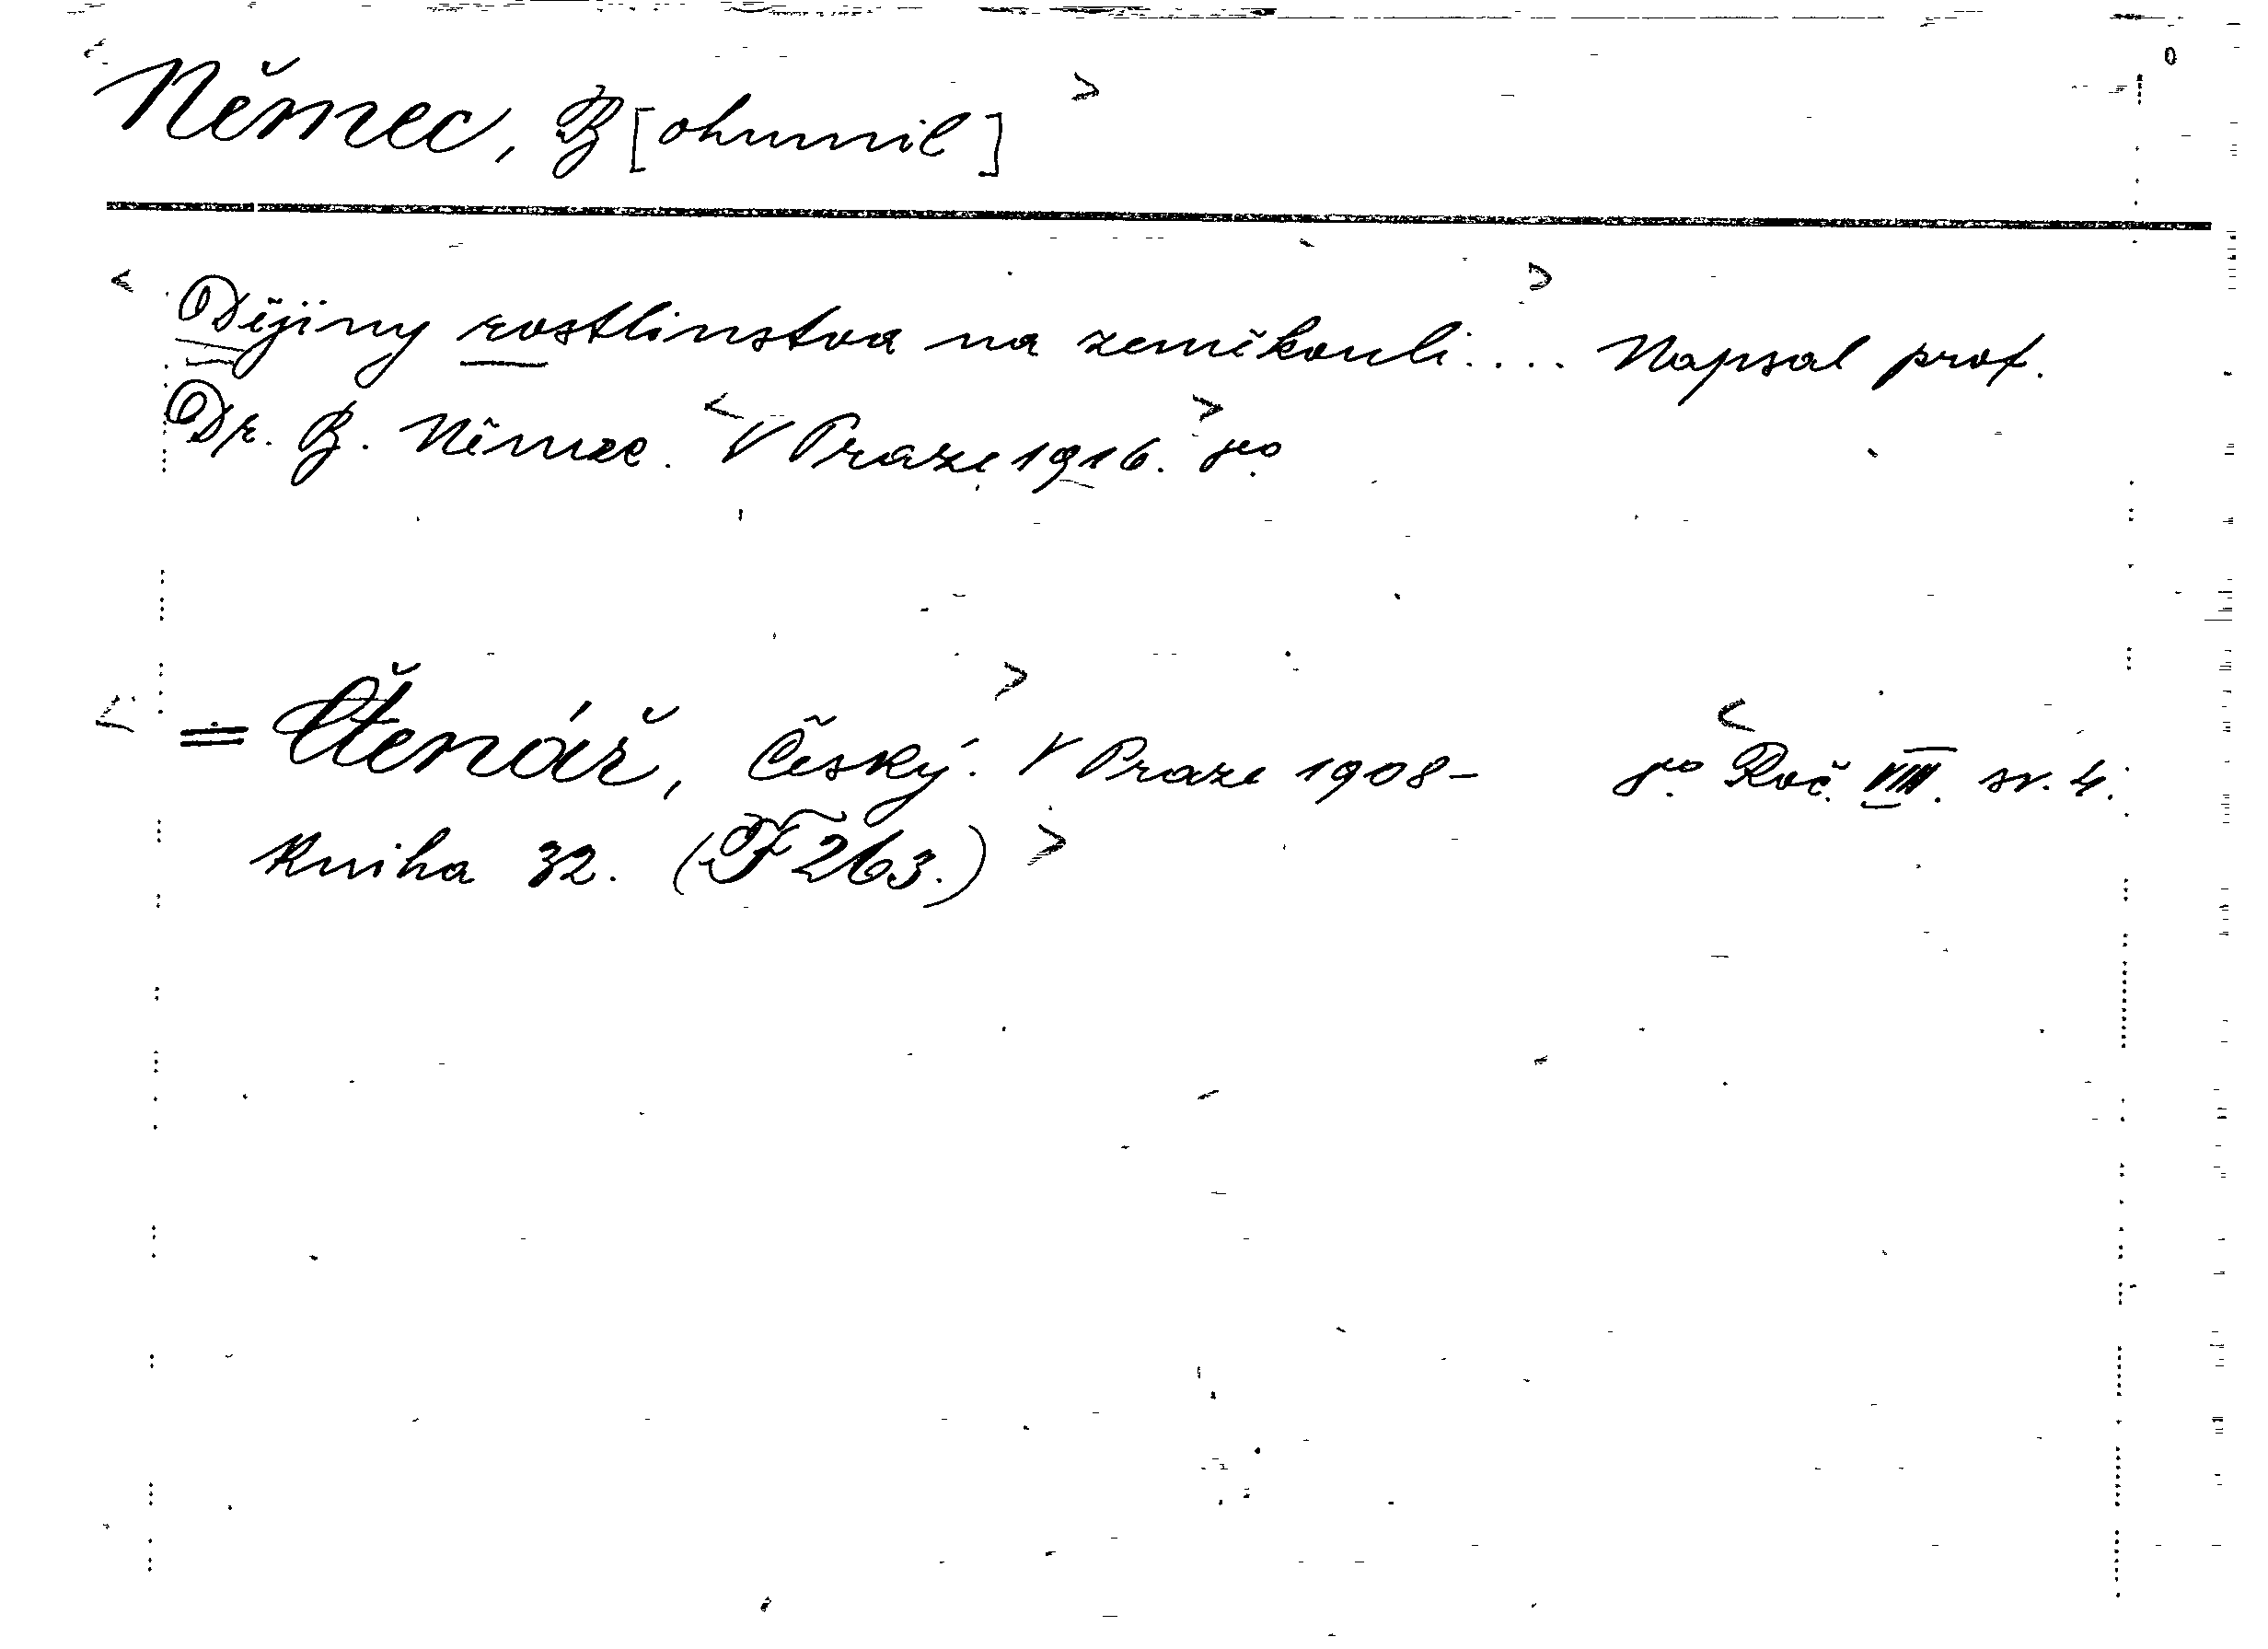 Němec, B[ohumil]
Dějiny rostlinstva na zeměkouli.... Napsal prof.
Dr. B. Němec. V Praze 1916. 8º.
= Čtenář, Český. V Praze 1908- 8º. Roč. VIII. sv. 4.
Kniha 32. (F 263.)